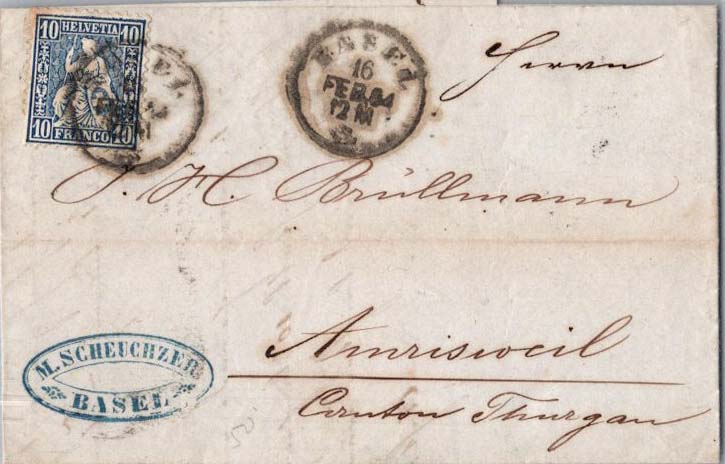 10 HELVETIA 10
10 FRANCO 10
BASEL
16
FEB 64
12 M
Herrn
J. H. Brüllmann
Amrisweil
Canton Thurgau
M. SCHEUCHZER
BASEL
50